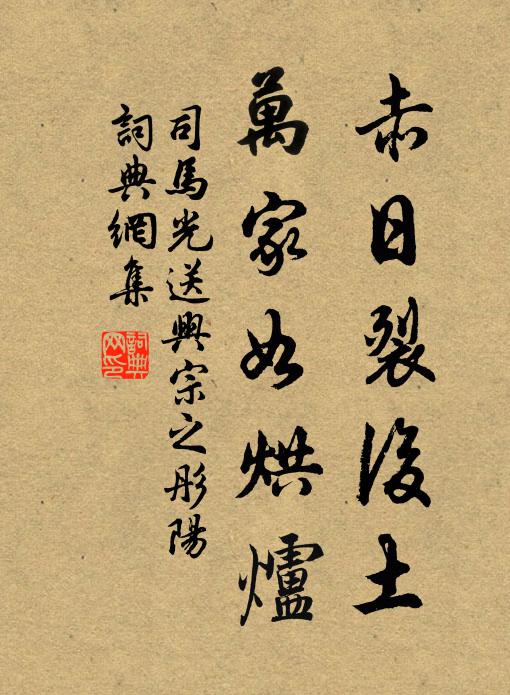 赤日裂後土
萬家如烘爐
司馬光送興宗之彤陽
詞典網集
詞典網印